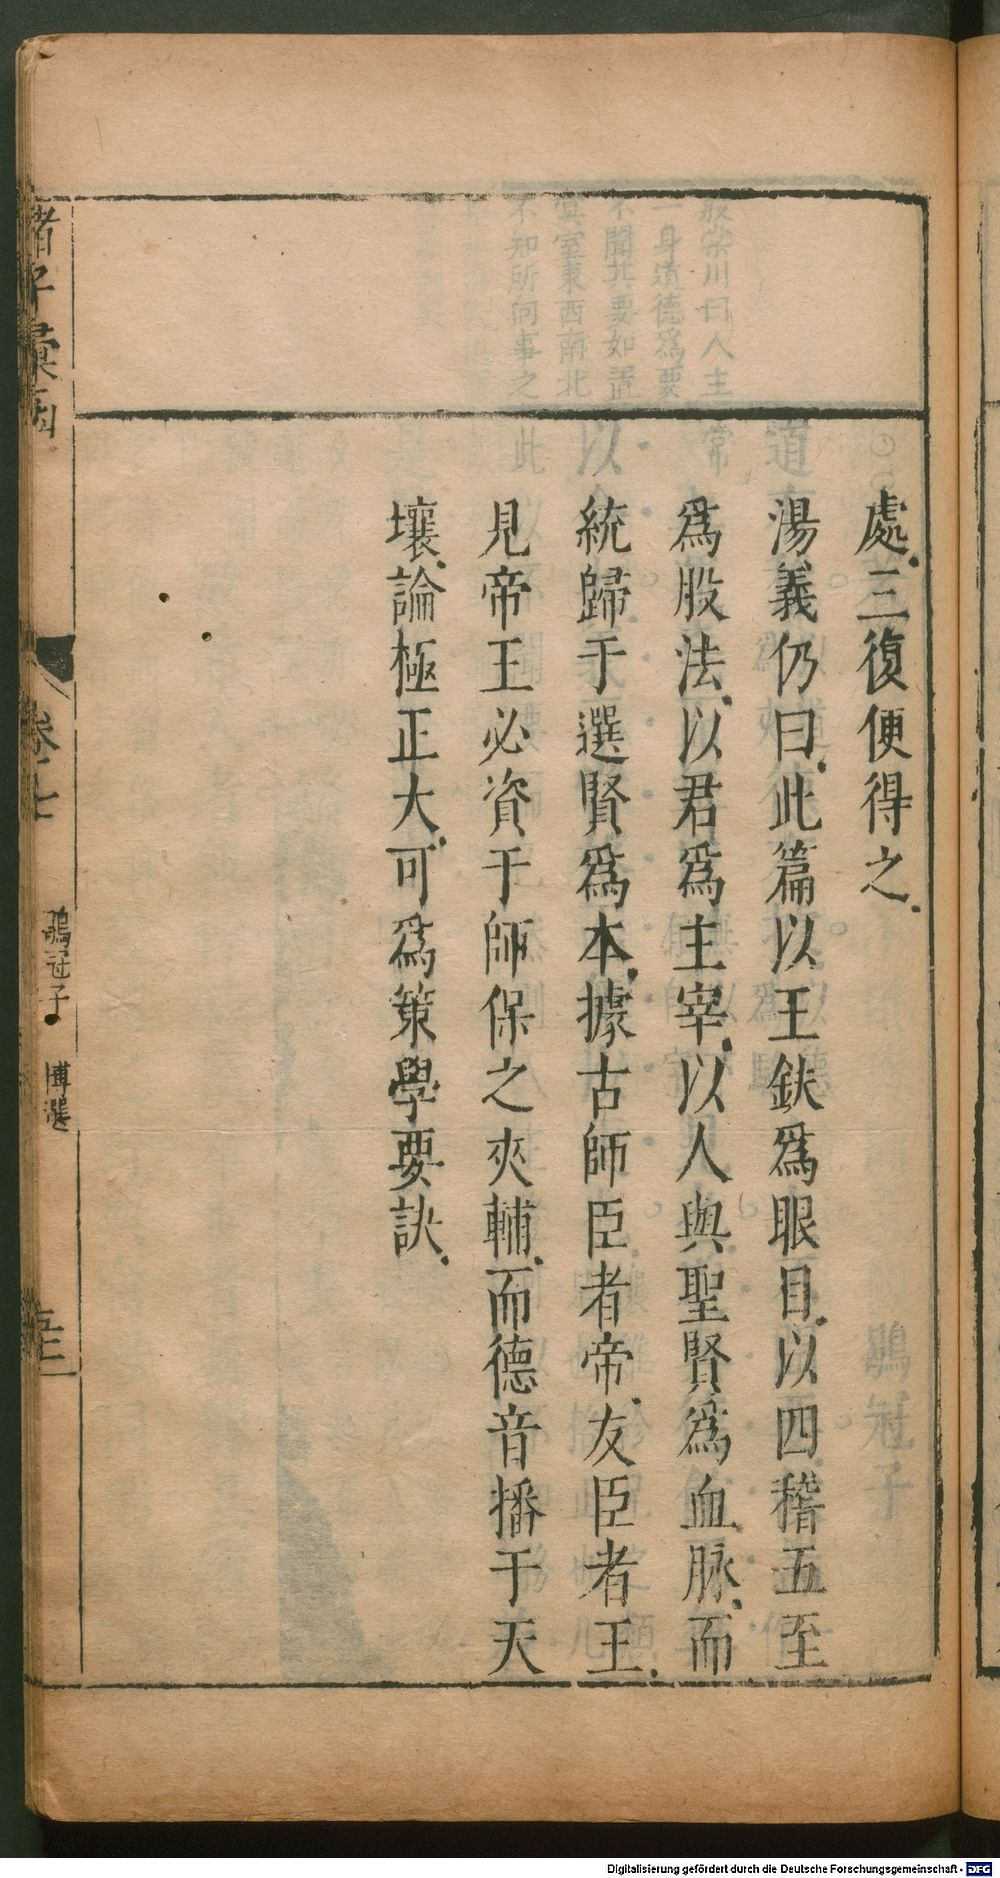 處三復便得之
湯義仍曰此篇以王鈇爲眼目以四稽五至
爲股法以君爲主宰以人與聖賢爲血脉而
統歸于選賢爲本據古師臣者帝友臣者王
見帝王必資于師保之夾輔而德音播于天
壤論極正大可爲策學要訣
諸子彙函
卷七
鶡冠子 博選
Digitalisierung gefördert durch die Deutsche Forschungsgemeinschaft - DFG